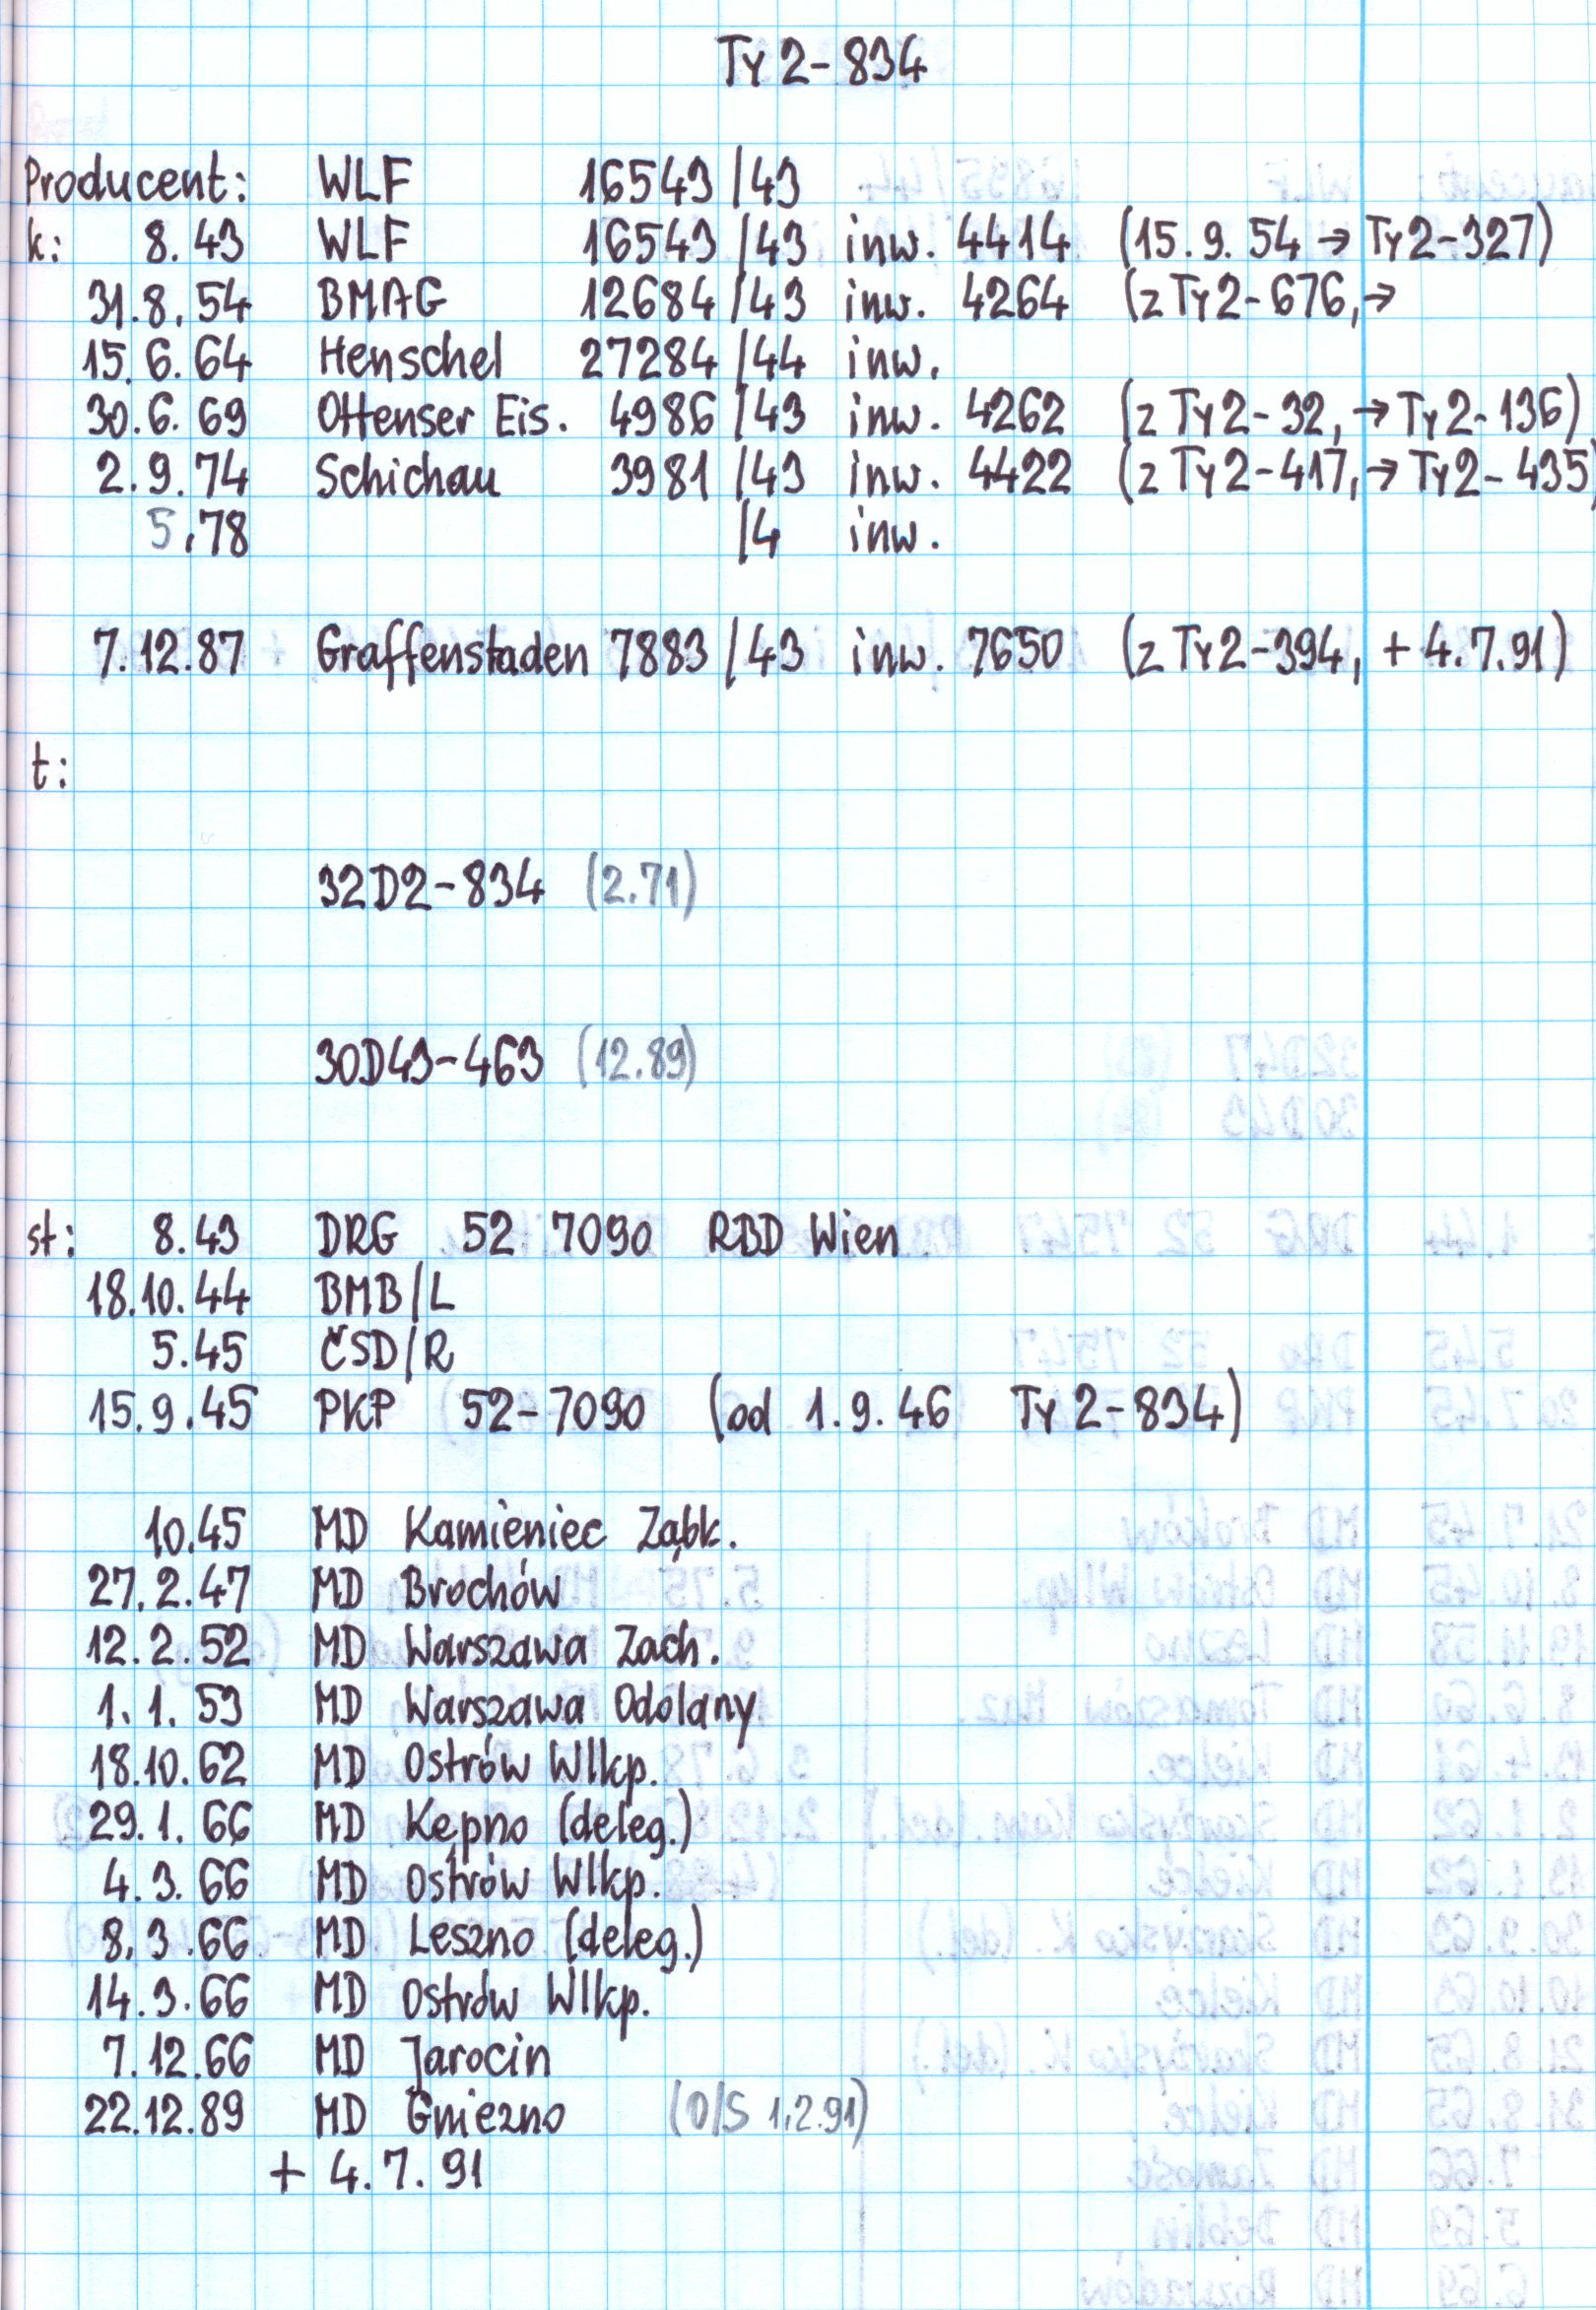 Ty2-834
Producent: WLF 16543/43
k: 8.43 WLF 16543/43 inw. 4414 (15.9.54 → Ty2-327)
31.8.54 BMAG 12684/43 inw. 4264 (z Ty2-676, →
15.6.64 Henschel 27284/44 inw.
30.6.69 Ottenser Eis. 4986/43 inw. 4262 (z Ty2-32, → Ty2-136)
2.9.74 Schichau 3981/43 inw. 4422 (z Ty2-417, → Ty2-435)
5.78 /4 inw.
7.12.87 Graffenstaden 7883/43 inw. 7650 (z Ty2-394, + 4.7.91)
t:
32D2-834 (2.71)
30D43-463 (12.89)
st: 8.43 DRG 52 7090 RBD Wien
18.10.44 BMB/L
5.45 ČSD/R
15.9.45 PKP 52-7090 (od 1.9.46 Ty2-834)
10.45 MD Kamieniec Ząbk.
27.2.47 MD Brochów
12.2.52 MD Warszawa Zach.
1.1.53 MD Warszawa Odolany
18.10.62 MD Ostrów Wlkp.
29.1.66 MD Kępno (deleg.)
4.3.66 MD Ostrów Wlkp.
8.3.66 MD Leszno (deleg.)
14.3.66 MD Ostrów Wlkp.
7.12.66 MD Jarocin
22.12.89 MD Gniezno (O/S 1.2.91)
+ 4.7.91